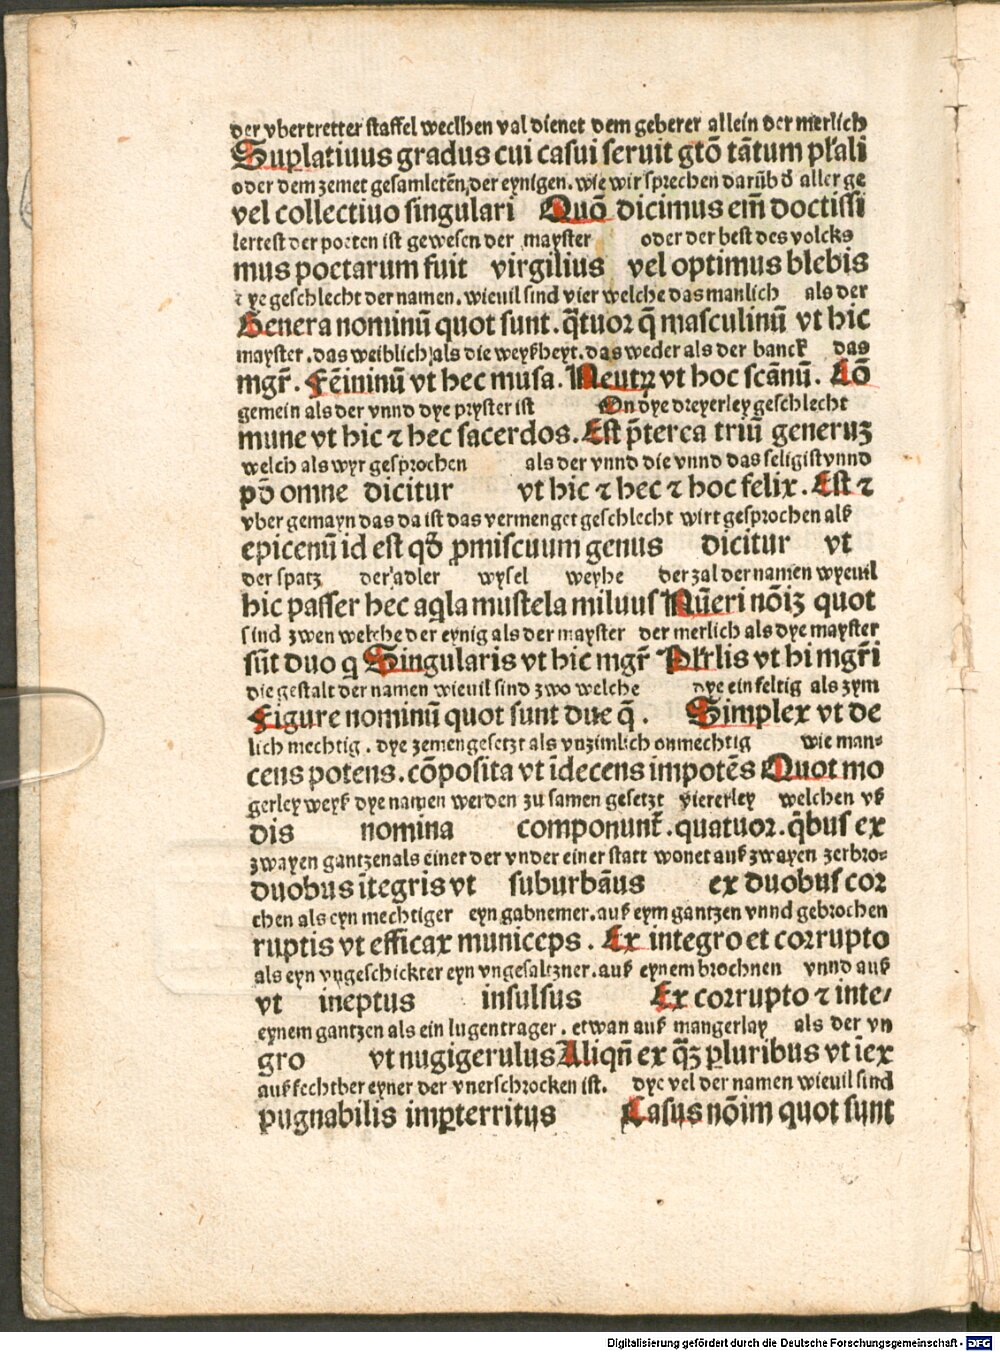 der vbertretter staffel weclhen val dienet dem geberer allein der merlich
Suplatiuus gradus cui casui seruit gtō tātum pľali
oder dem zemet gesamletēn der eynigen. wie wir sprechen darūb đ aller ge
vel collectiuo singulari Quō dicimus em̄ doctissi
lertest der poeten ist gewesen der mayster oder der best des volcks
mus poetarum fuit virgilius vel optimus blebis
dye geschlecht der namen. wieuil sind vier welche das manlich als der
Genera nominū quot sunt. q̄tuor q̄ masculinū vt hic
mayster. das weiblich als die weyßheyt. das weder als der banck das
mgr̄. Fēininū vt hec musa. Neutꝝ vt hoc scānū. Cō
gemein als der vnnd dye pryster ist On dye dreyerley geschlecht
mune vt hic ⁊ hec sacerdos. Est p̄terea triū generuꝫ
welch als wyr gesprochen als der vnnd die vnnd das seligist vnnd
ꝓđ omne dicitur vt hic ⁊ hec ⁊ hoc felix. Est ⁊
vber gemayn das da ist das vermenget geschlecht wirt gesprochen alß
epicenū id est qđ ꝓmiscuum genus dicitur vt
der spatz der adler wysel weyhe der zal der namen wyeuil
hic passer hec aq̄la mustela miluus Nūeri nōiꝫ quot
sind zwen welche der eynig als der mayster der merlich als dye mayster
sūt duo q̄ Singularis vt hic mgr̄ Pľrlis vt hi mgr̄i
die gestalt der namen wieuil sind zwo welche dye einfeltig als zym
Figure nominū quot sunt due q̄. Simplex vt de
lich mechtig. dye zemengesetzt als vnzimlich onmechtig wie man⸗
cens potens. cōposita vt īdecens impotēs Quot mo
gerley weyß dye namen werden zu samen gesetzt viererley welchen vß
dis nomina componunt̄. quatuor. q̄bus ex
zwayen gantzen als einer der vnder einer statt wonet auß zwayen zerbro⸗
duobus ītegris vt suburbāus ex duobus cor
chen als eyn mechtiger eyn gabnemer. auß eym gantzen vnnd gebrochen
ruptis vt efficax municeps. Ex integro et corrupto
als eyn vngeschickter eyn vngesaltzner. auß eynem brochnen vnnd auß
vt ineptus insulsus Ex corrupto ⁊ inte/
eynem gantzen als ein lugentrager. etwan auß mangerlay als der vn
gro vt nugigerulus Aliqn̄ ex q̄ꝫ pluribus vt īex
außfechtber eyner der vnerschrocken ist. dye vel der namen wieuil sind
pugnabilis imꝑterritus Casus nōim quot sunt
Digitalisierung gefördert durch die Deutsche Forschungsgemeinschaft - DFG